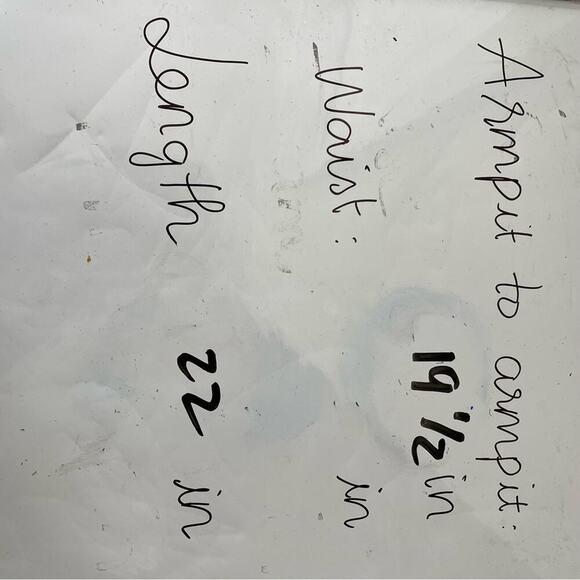 Armpit to armpit:
19 1/2 in
Waist:
in
Length
22 in